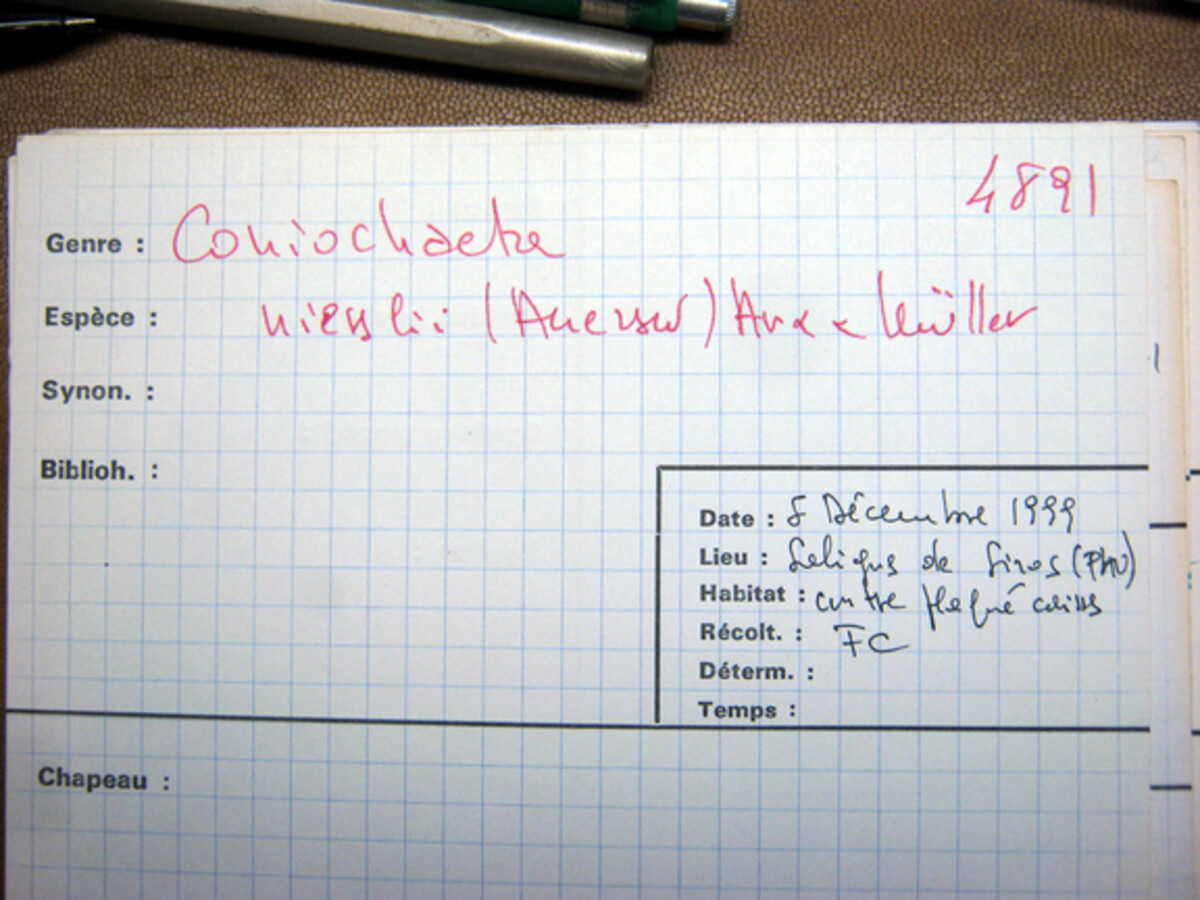 4891
Genre : Coniochaeta
Espèce : niesslii (Auersw) Arx & Müller
Synon. :
Biblioh. :
Date : 8 Décembre 1999
Lieu : de
Habitat : contre
Récolt. : FC
Déterm. :
Temps :
Chapeau :